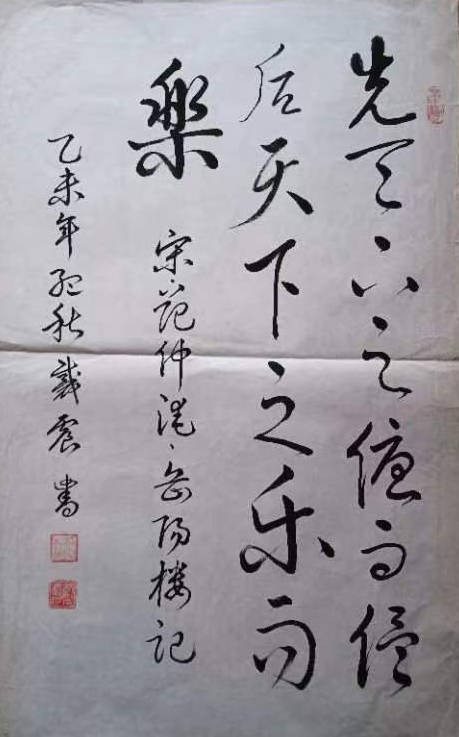 先天下之優而優
后天下之乐而
樂
宋范仲淹、岳陽樓記
乙未年秋戴震書